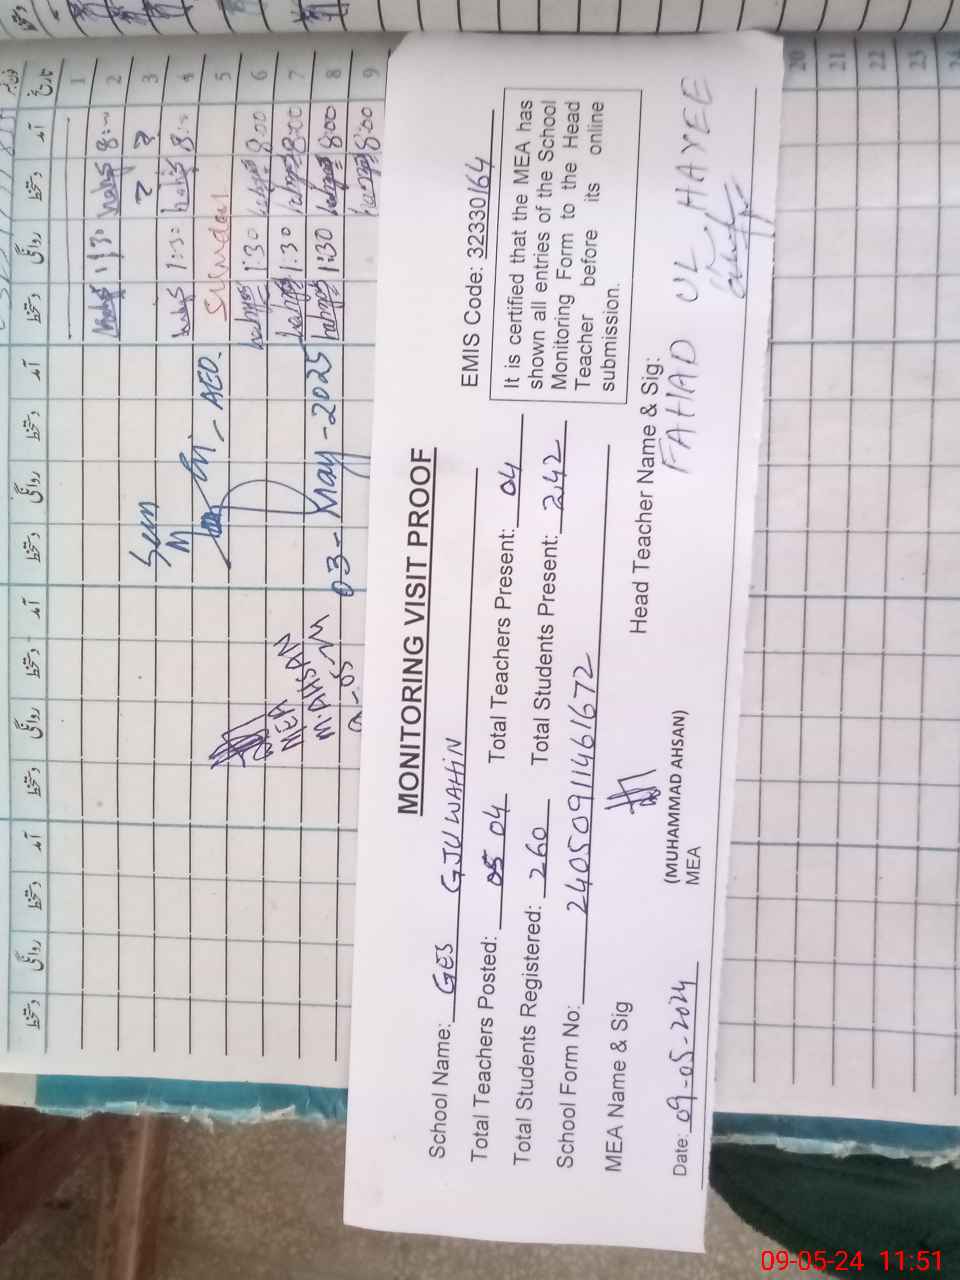 MONITORING VISIT PROOF
School Name: GES GJU WAHIN
EMIS Code: 32330164
Total Teachers Posted: 05 04 Total Teachers Present: 04
Total Students Registered: 260 Total Students Present: 242
School Form No: 24050911461672
It is certified that the MEA has
shown all entries of the School
Monitoring Form to the Head
Teacher before its online
submission.
MEA Name & Sig
(MUHAMMAD AHSAN)
MEA
Head Teacher Name & Sig:
FAHAD UL HAYEE
Date: 09-05-2024
تاریخ آمد دستخط روانگی دستخط آمد دستخط روانگی دستخط آمد دستخط روانگی دستخط آمد دستخط روانگی دستخط
1
2 8:00 1:30
3 ? ?
4 8:00 1:30
5 Sunday
6 8:00 1:30
7 8:00 1:30
8 8:00 1:30
9 8:00
20
21
22
23
24
Seen
AEO.
03-May-2025
MEA
M.AHSAN
09-05-24 11:51